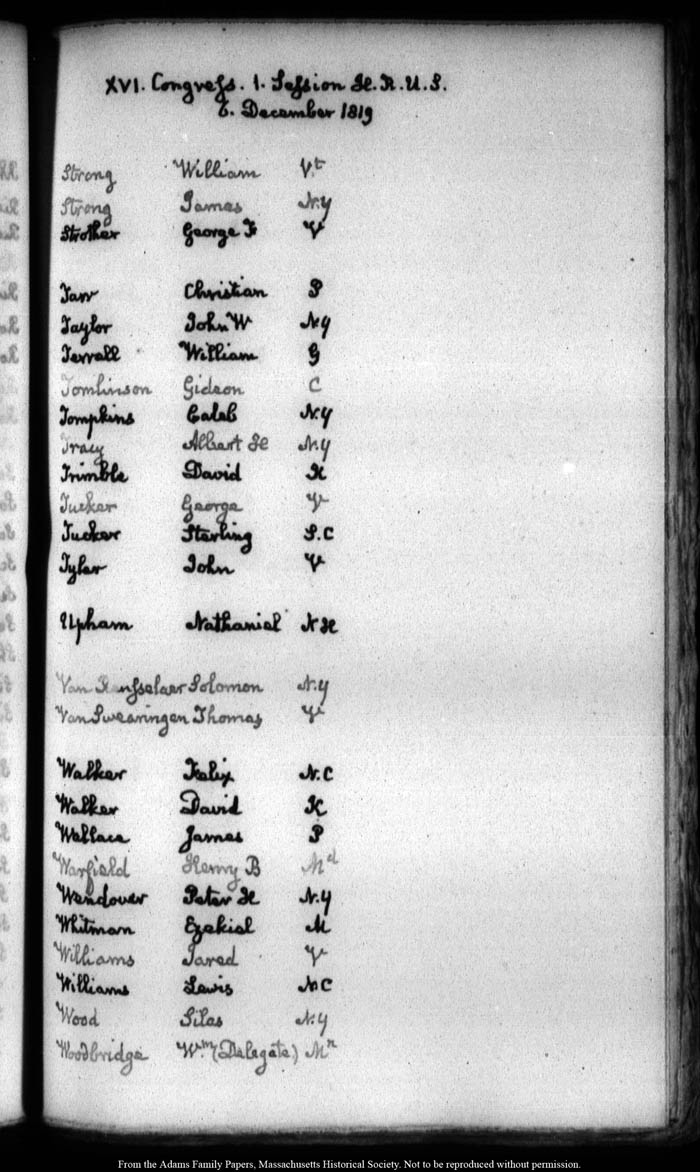 XVI. Congress. 1. Session H.R.U.S.
6. December 1819
Strong William Vt
Strong James N.Y
Strother George F V
Tarr Christian P
Taylor John W N.Y
Terrall William G
Tomlinson Gideon C
Tompkins Caleb N.Y
Tracy Albert H N.Y
Trimble David K
Tucker George V
Tucker Starling S.C
Tyler John V
Upham Nathanial N H
Van Rensselaer Solomon N.Y
Van Swearingen Thomas V
Walker Felix N.C
Walker David K
Wallace James P
Warfield Henry B Md
Wendover Peter H N.Y
Whitman Ezekiel M
Williams Jared V
Williams Lewis N C
Wood Silas N.Y
Woodbridge Wm (Delegate) Mn
From the Adams Family Papers, Massachusetts Historical Society. Not to be reproduced without permission.